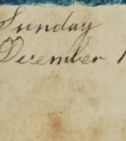 Sunday
December 1